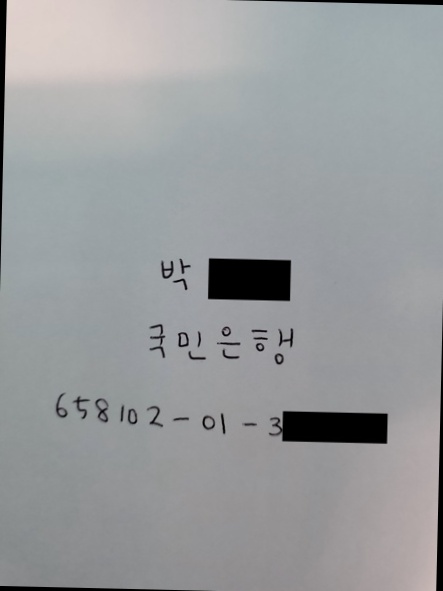 박
국민은행
658102-01-3